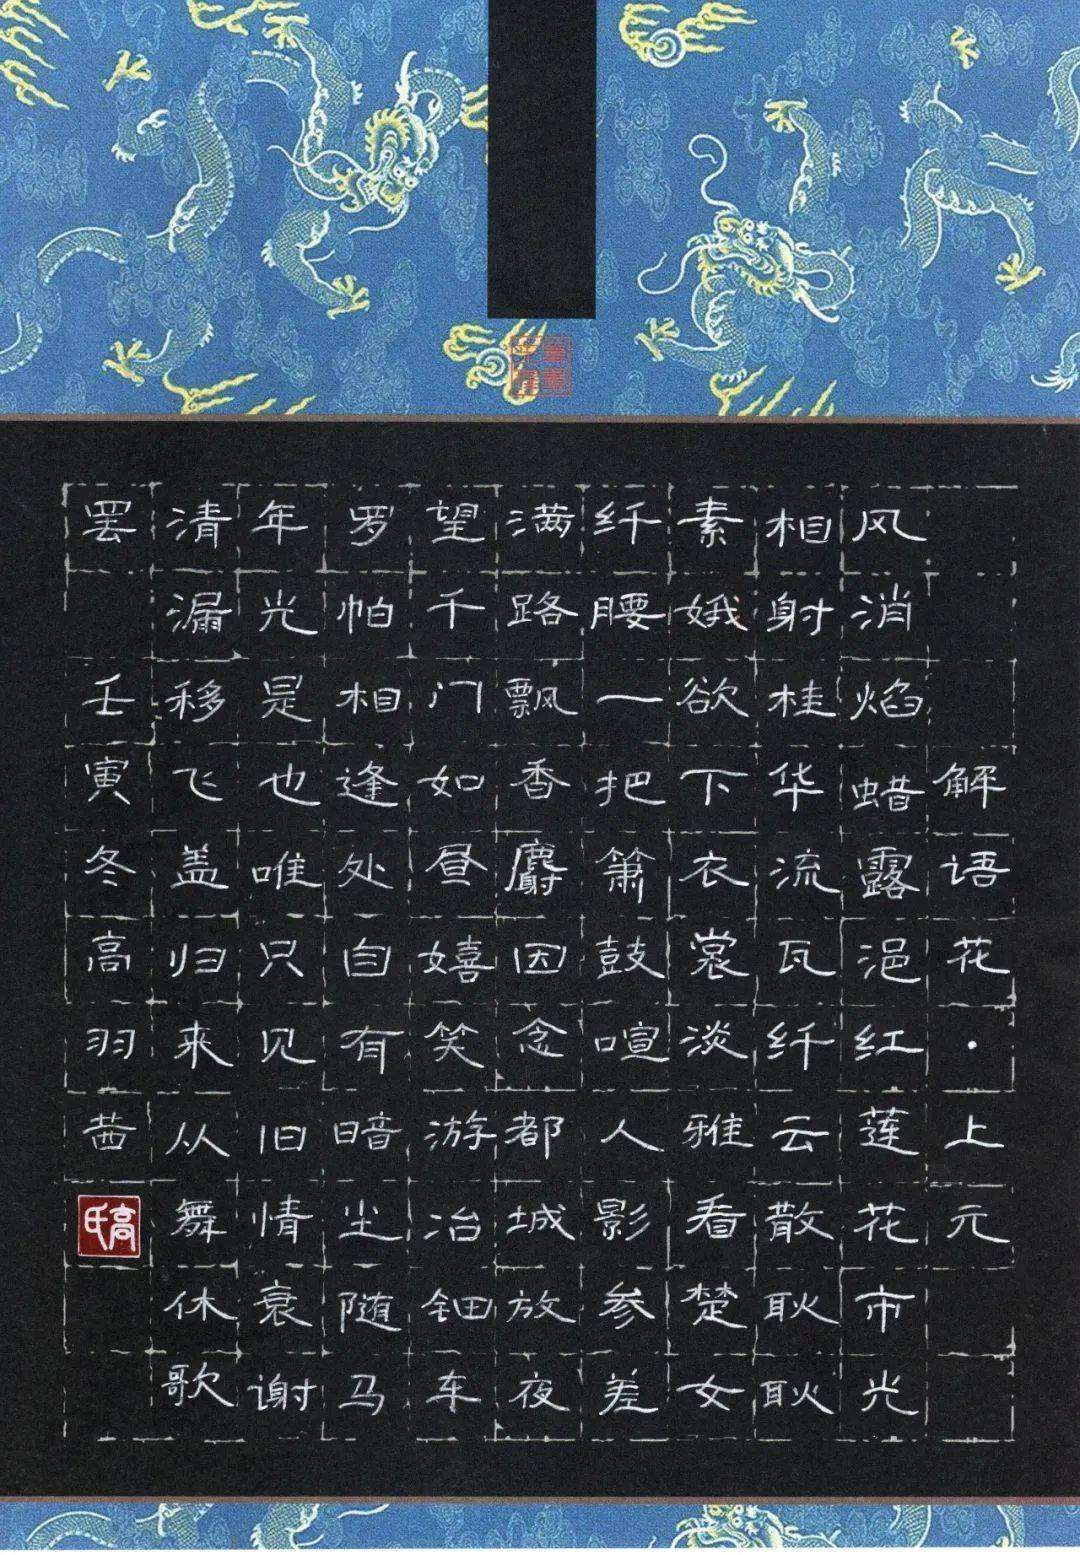 解语花·上元
风消焰蜡露浥红莲花市光
相射桂华流瓦纤云散耿耿
素娥欲下衣裳淡雅看楚女
纤腰一把箫鼓喧人影参差
满路飘香麝因念都城放夜
望千门如昼嬉笑游冶钿车
罗帕相逢处自有暗尘随马
年光是也唯只见旧情衰谢
清漏移飞盖归来从舞休歌
罢壬寅冬高羽茜